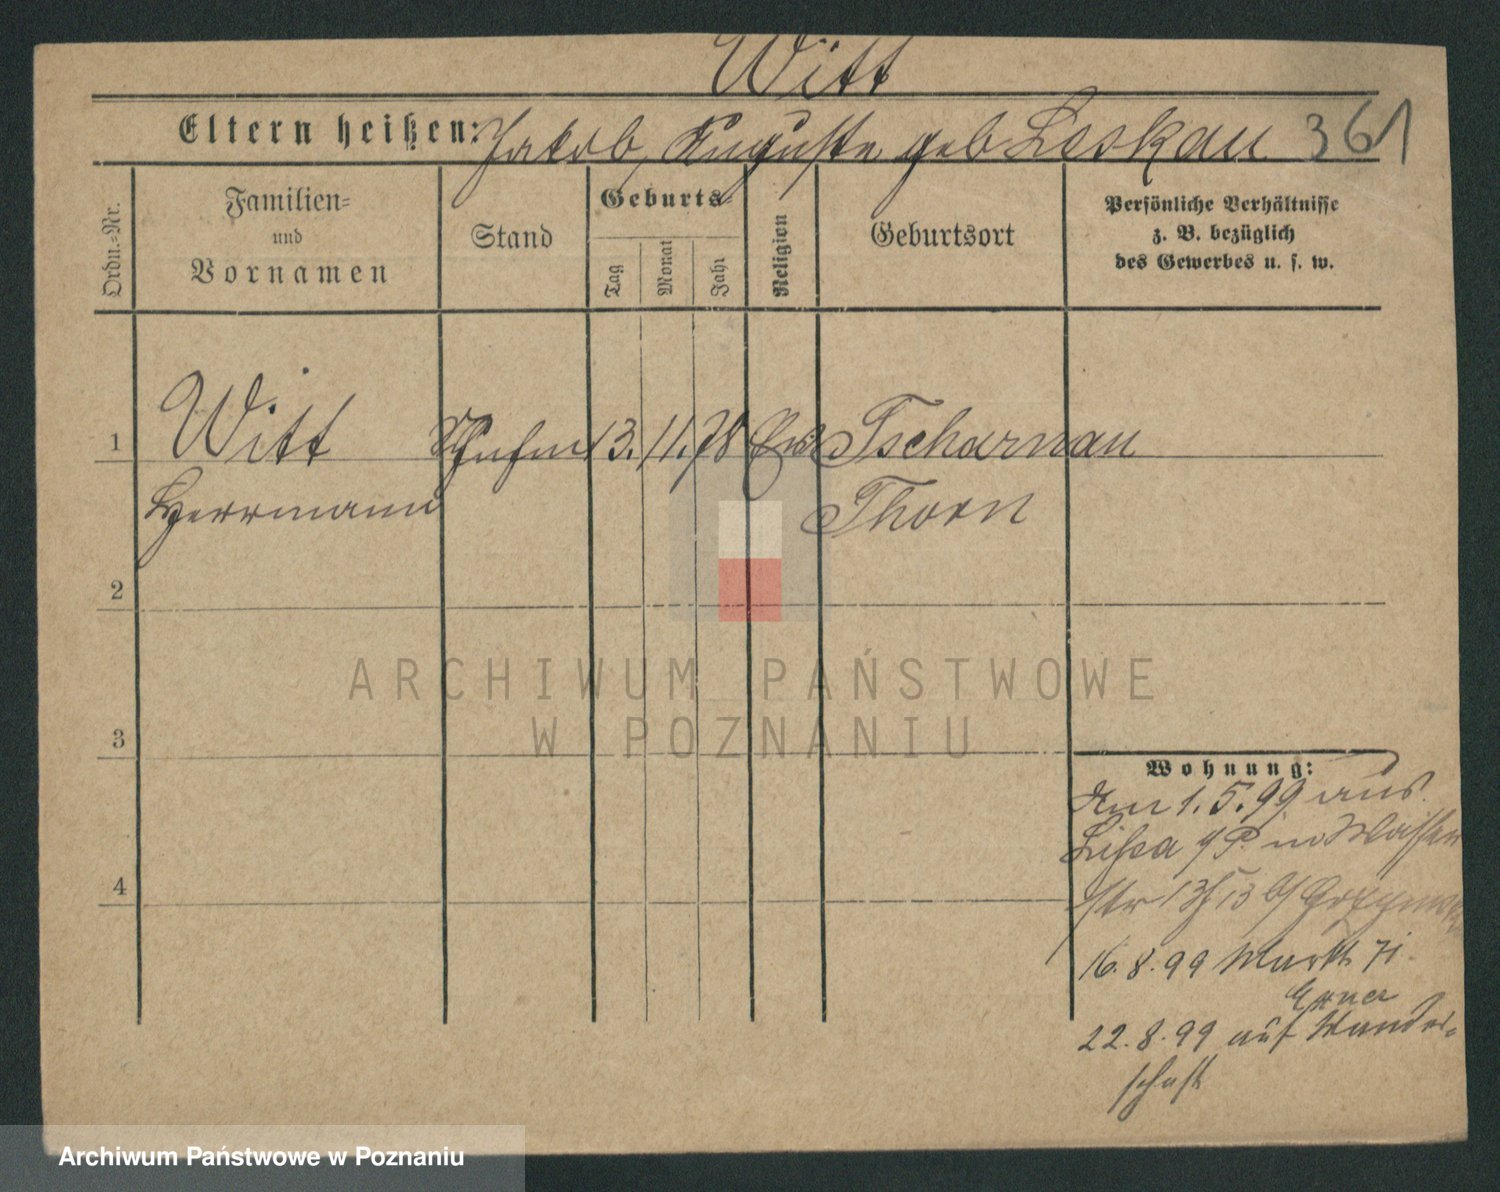 Witt
Eltern heißen: Jakob, Auguste geb Leskau 361
Ordn.=Nr.
Familien=
und
Vornamen
Stand
Geburts=
Tag
Monat
Jahr
Religion
Geburtsort
Persönliche Verhältnisse
z. B. bezüglich
des Gewerbes u. s. w.
1 Witt 13. 11. 78 Tscharnau
Herrmann Thorn
2
ARCHIWUM PAŃSTWOWE
W POZNANIU
3
Wohnung:
Am 1. 5. 99 aus
Lissa i/P. in
str 13
4
16. 8. 99 Markt 71.
22. 8. 99 auf Wander=
schaft
Archiwum Państwowe w Poznaniu